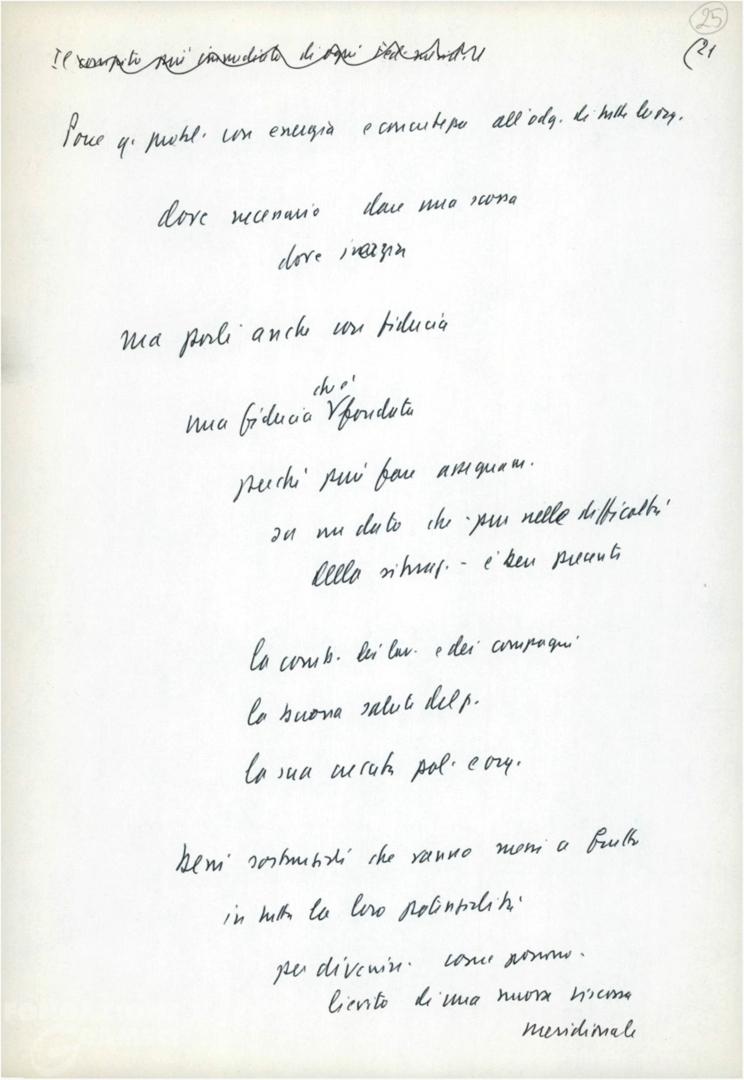 25
(21
Il compito più immediato di ogni
Porre q. probl. con energia e concretezza all'odg. di tutte le org.
dove necessario dare una scossa
dove inerzia
ma porli anche con fiducia
che è
una fiducia V fondata
perché può fare assegnam.
su un dato che - pur nelle difficoltà
della situaz. - è ben presente
la comb. dei lav. e dei compagni
la buona salute del p.
la sua crescita pol. e org.
beni sostanziali che vanno messi a frutto
in tutta la loro potenzialità
per divenire - come possono -
lievito di una nuova riscossa
meridionale